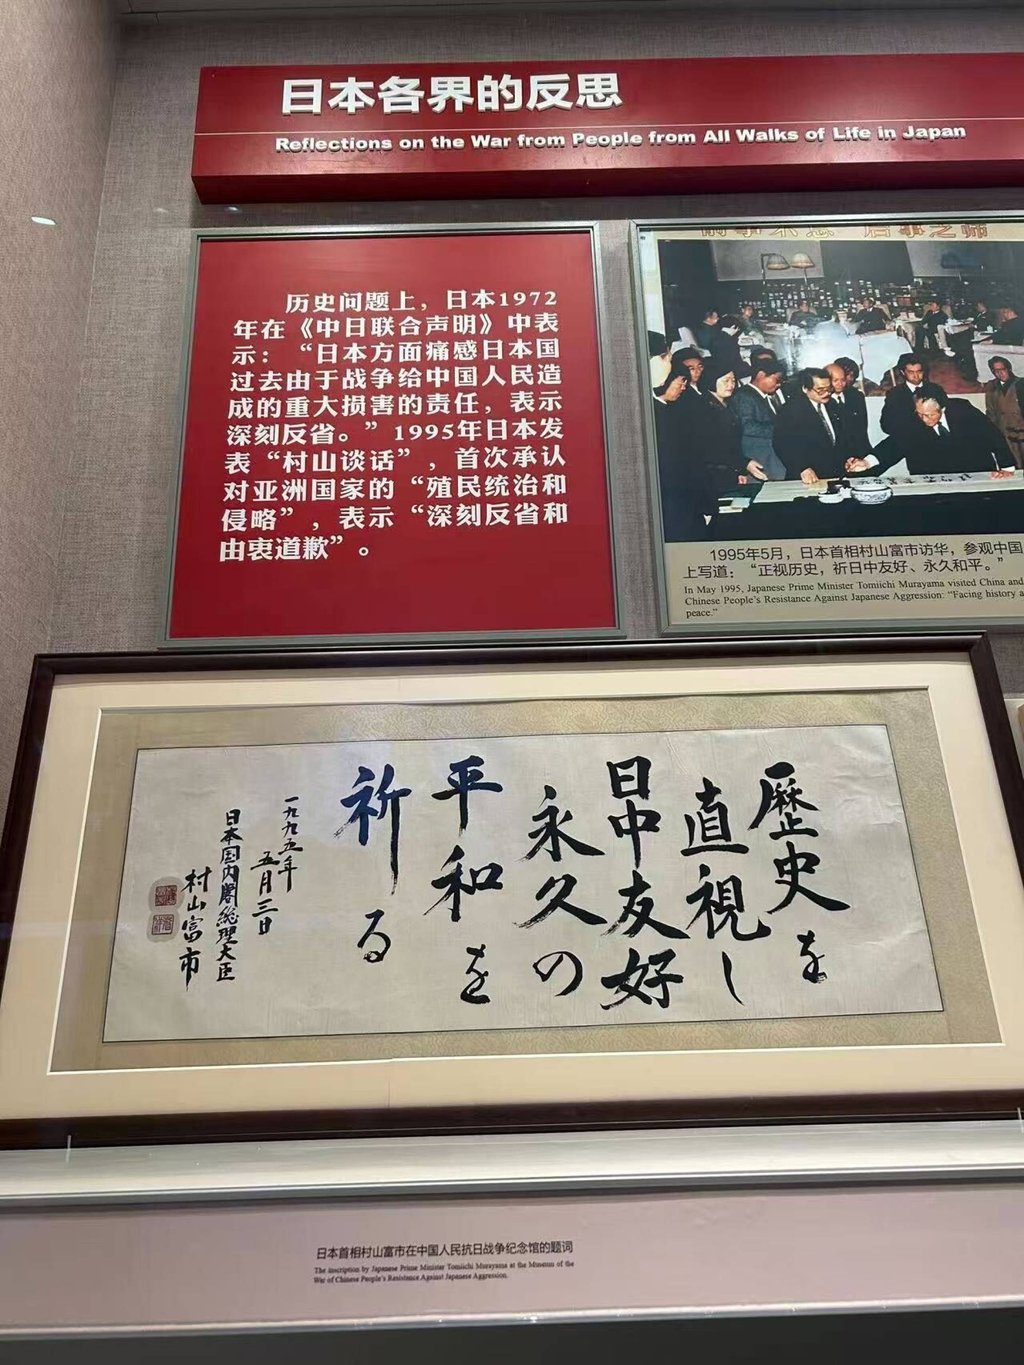 日本各界的反思
Reflections on the War from People from All Walks of Life in Japan
历史问题上，日本1972
年在《中日联合声明》中表
示：“日本方面痛感日本国
过去由于战争给中国人民造
成的重大损害的责任，表示
深刻反省。”1995年日本发
表“村山谈话”，首次承认
对亚洲国家的“殖民统治和
侵略”，表示“深刻反省和
由衷道歉”。
前事不忘 后事之师
1995年5月，日本首相村山富市访华，参观中国
上写道：“正视历史，祈日中友好、永久和平。”
In May 1995, Japanese Prime Minister Tomiichi Murayama visited China and
Chinese People's Resistance Against Japanese Aggression: “Facing history a
peace.”
歷史を
直視し
日中友好
永久の
平和を
祈る
一九九五年
五月三日
日本国内閣総理大臣
村山富市
日本首相村山富市在中国人民抗日战争纪念馆的题词
The inscription by Japanese Prime Minister Tomiichi Murayama at the Museum of the
War of Chinese People's Resistance Against Japanese Aggression.